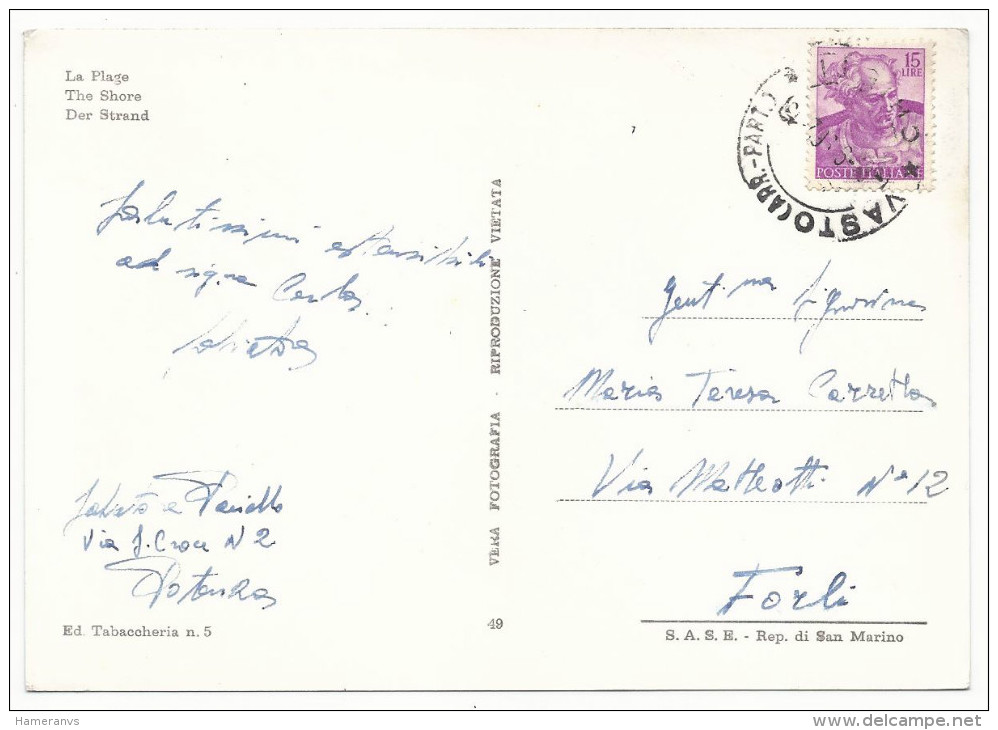 La Plage
The Shore
Der Strand
15
LIRE
POSTE ITALIANE
VASTO (ARR.-PART.)
Salutissimi estensibili
ad sig.ra Carla
VERA FOTOGRAFIA - RIPRODUZIONE VIETATA
Gent.ma Signorina
Maria Teresa Carretta
Via Matteotti N° 12
Forlì
Via S. Croce N 2
Potenza
Ed. Tabaccheria n. 5
49
S. A. S. E. - Rep. di San Marino
Hameranvs
delcampe.net